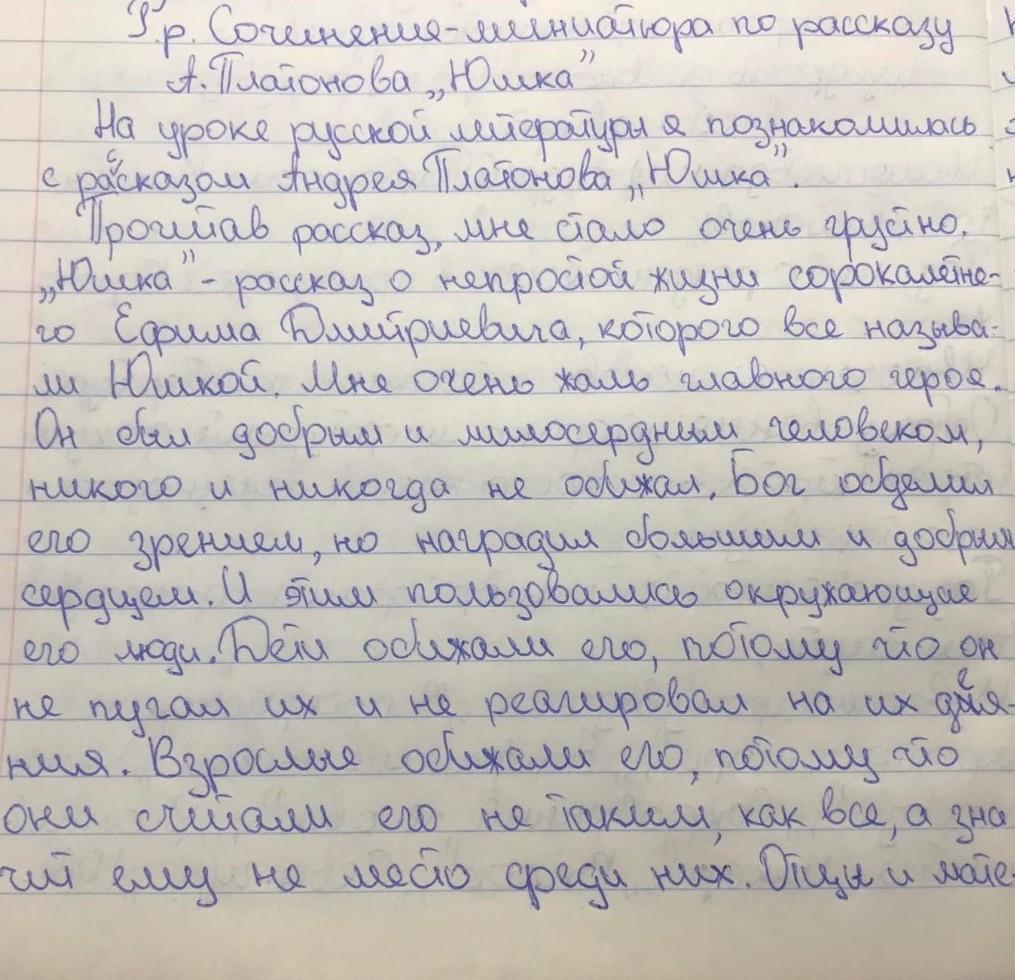 Р.р. Сочинение-миниатюра по рассказу
А. Платонова „Юшка”
На уроке русской литературы я познакомилась
с рассказом Андрея Платонова „Юшка”.
Прочитав рассказ, мне стало очень грустно.
„Юшка” - рассказ о непростой жизни сорокалетне-
го Ефима Дмитриевича, которого все называ-
ли Юшкой. Мне очень жаль главного героя.
Он был добрым и милосердным человеком,
никого и никогда не обижал. Бог обделил
его зрением, но наградил большим и добрым
сердцем. И этим пользовались окружающие
его люди. Дети обижали его, потому что он
не пугал их и не реагировал на их дея-
ния. Взрослые обижали его, потому что
они считали его не таким, как все, а зна
чит ему не место среди них. Отцы и мате-